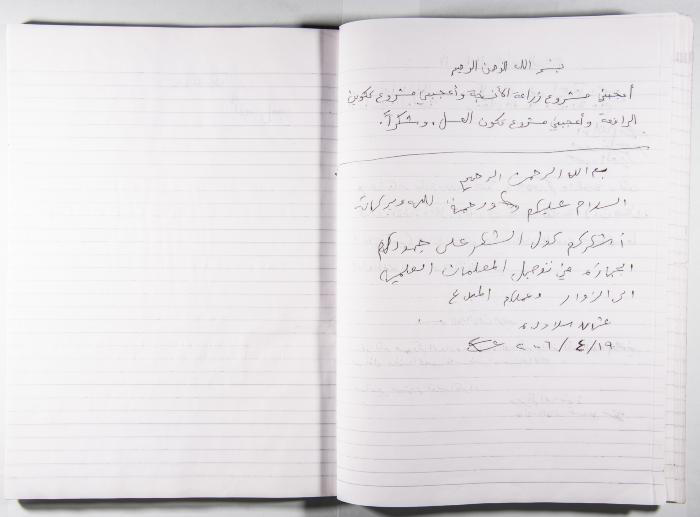 بسم الله الرحمن الرحيم
أعجبني مشروع زراعة الأنسجة وأعجبني مشروع تكوين
الرائحة وأعجبني مشروع تكون العسل، وشكراً.
بسم الله الرحمن الرحيم
السلام عليكم ورحمة الله وبركاته
أشكركم كول الشكر على جهودكم
الجبارة في توصيل المعلمات العلمية
الى الزوار
٢٠٠٦/٤/١٩